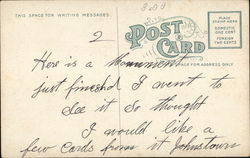 THIS SPACE FOR WRITING MESSAGES
POST CARD
PLACE STAMP HERE
DOMESTIC ONE CENT
FOREIGN TWO CENTS
SPACE FOR ADDRESS ONLY
2
Here is a Monument
just finished I went to
see it So thought
I would like a
few cards from it Johnstown